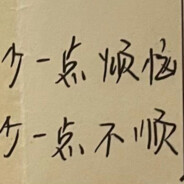 少一点烦恼
少一点不顺